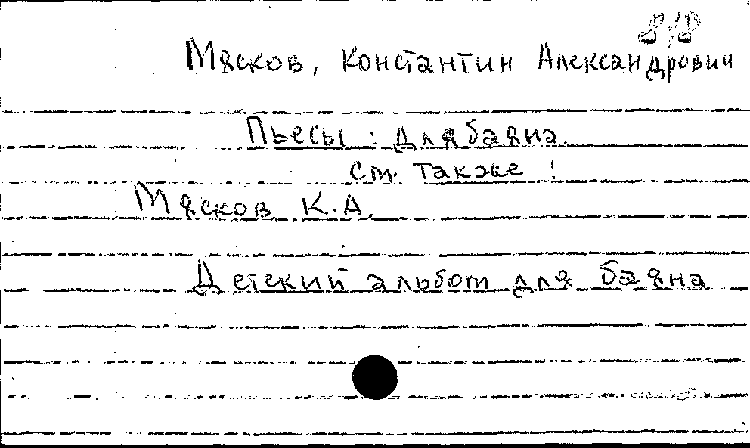 Мясков, Константин Александрович
Пьесы: для баяна.
см. также:
Мясков К.А.
Детский альбом для баяна